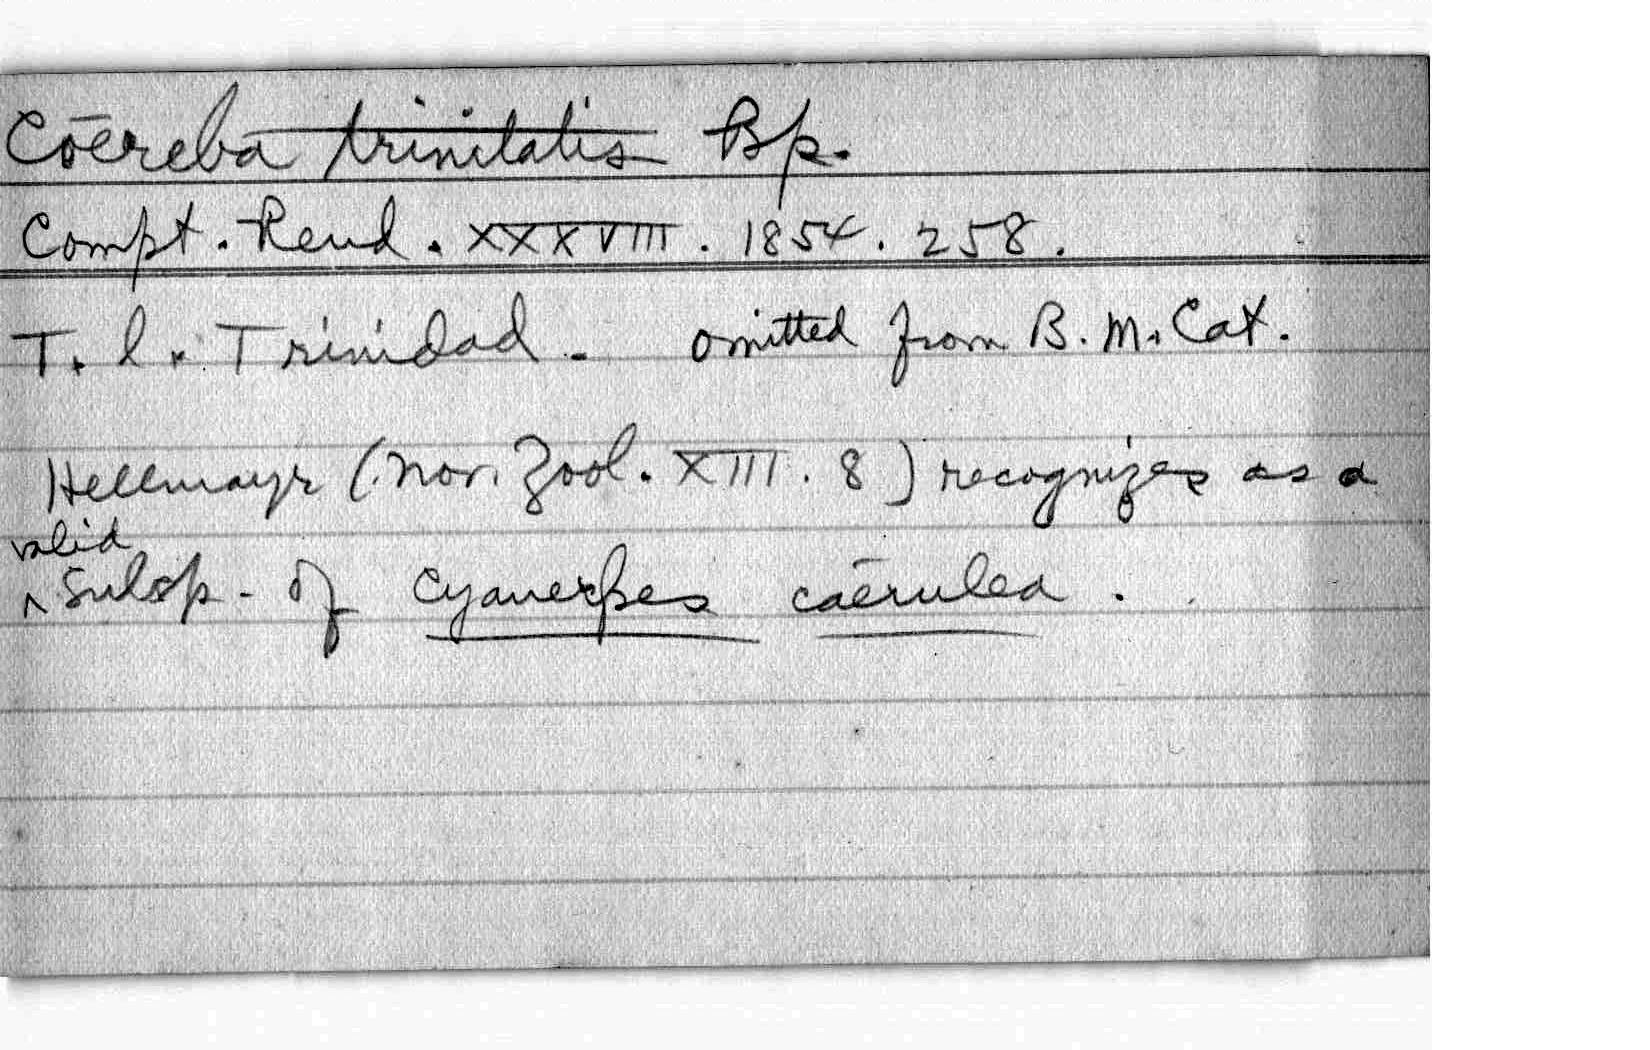 Coereba trinitatis Bp.
Compt. Rend. XXXVIII. 1854. 258.
T. l. Trinidad - omitted from B. M. Cat.
Hellmayr (Nov. Zool. XIII. 8) recognizes as a
valid
^ Subsp. of Cyanerpes caerulea.